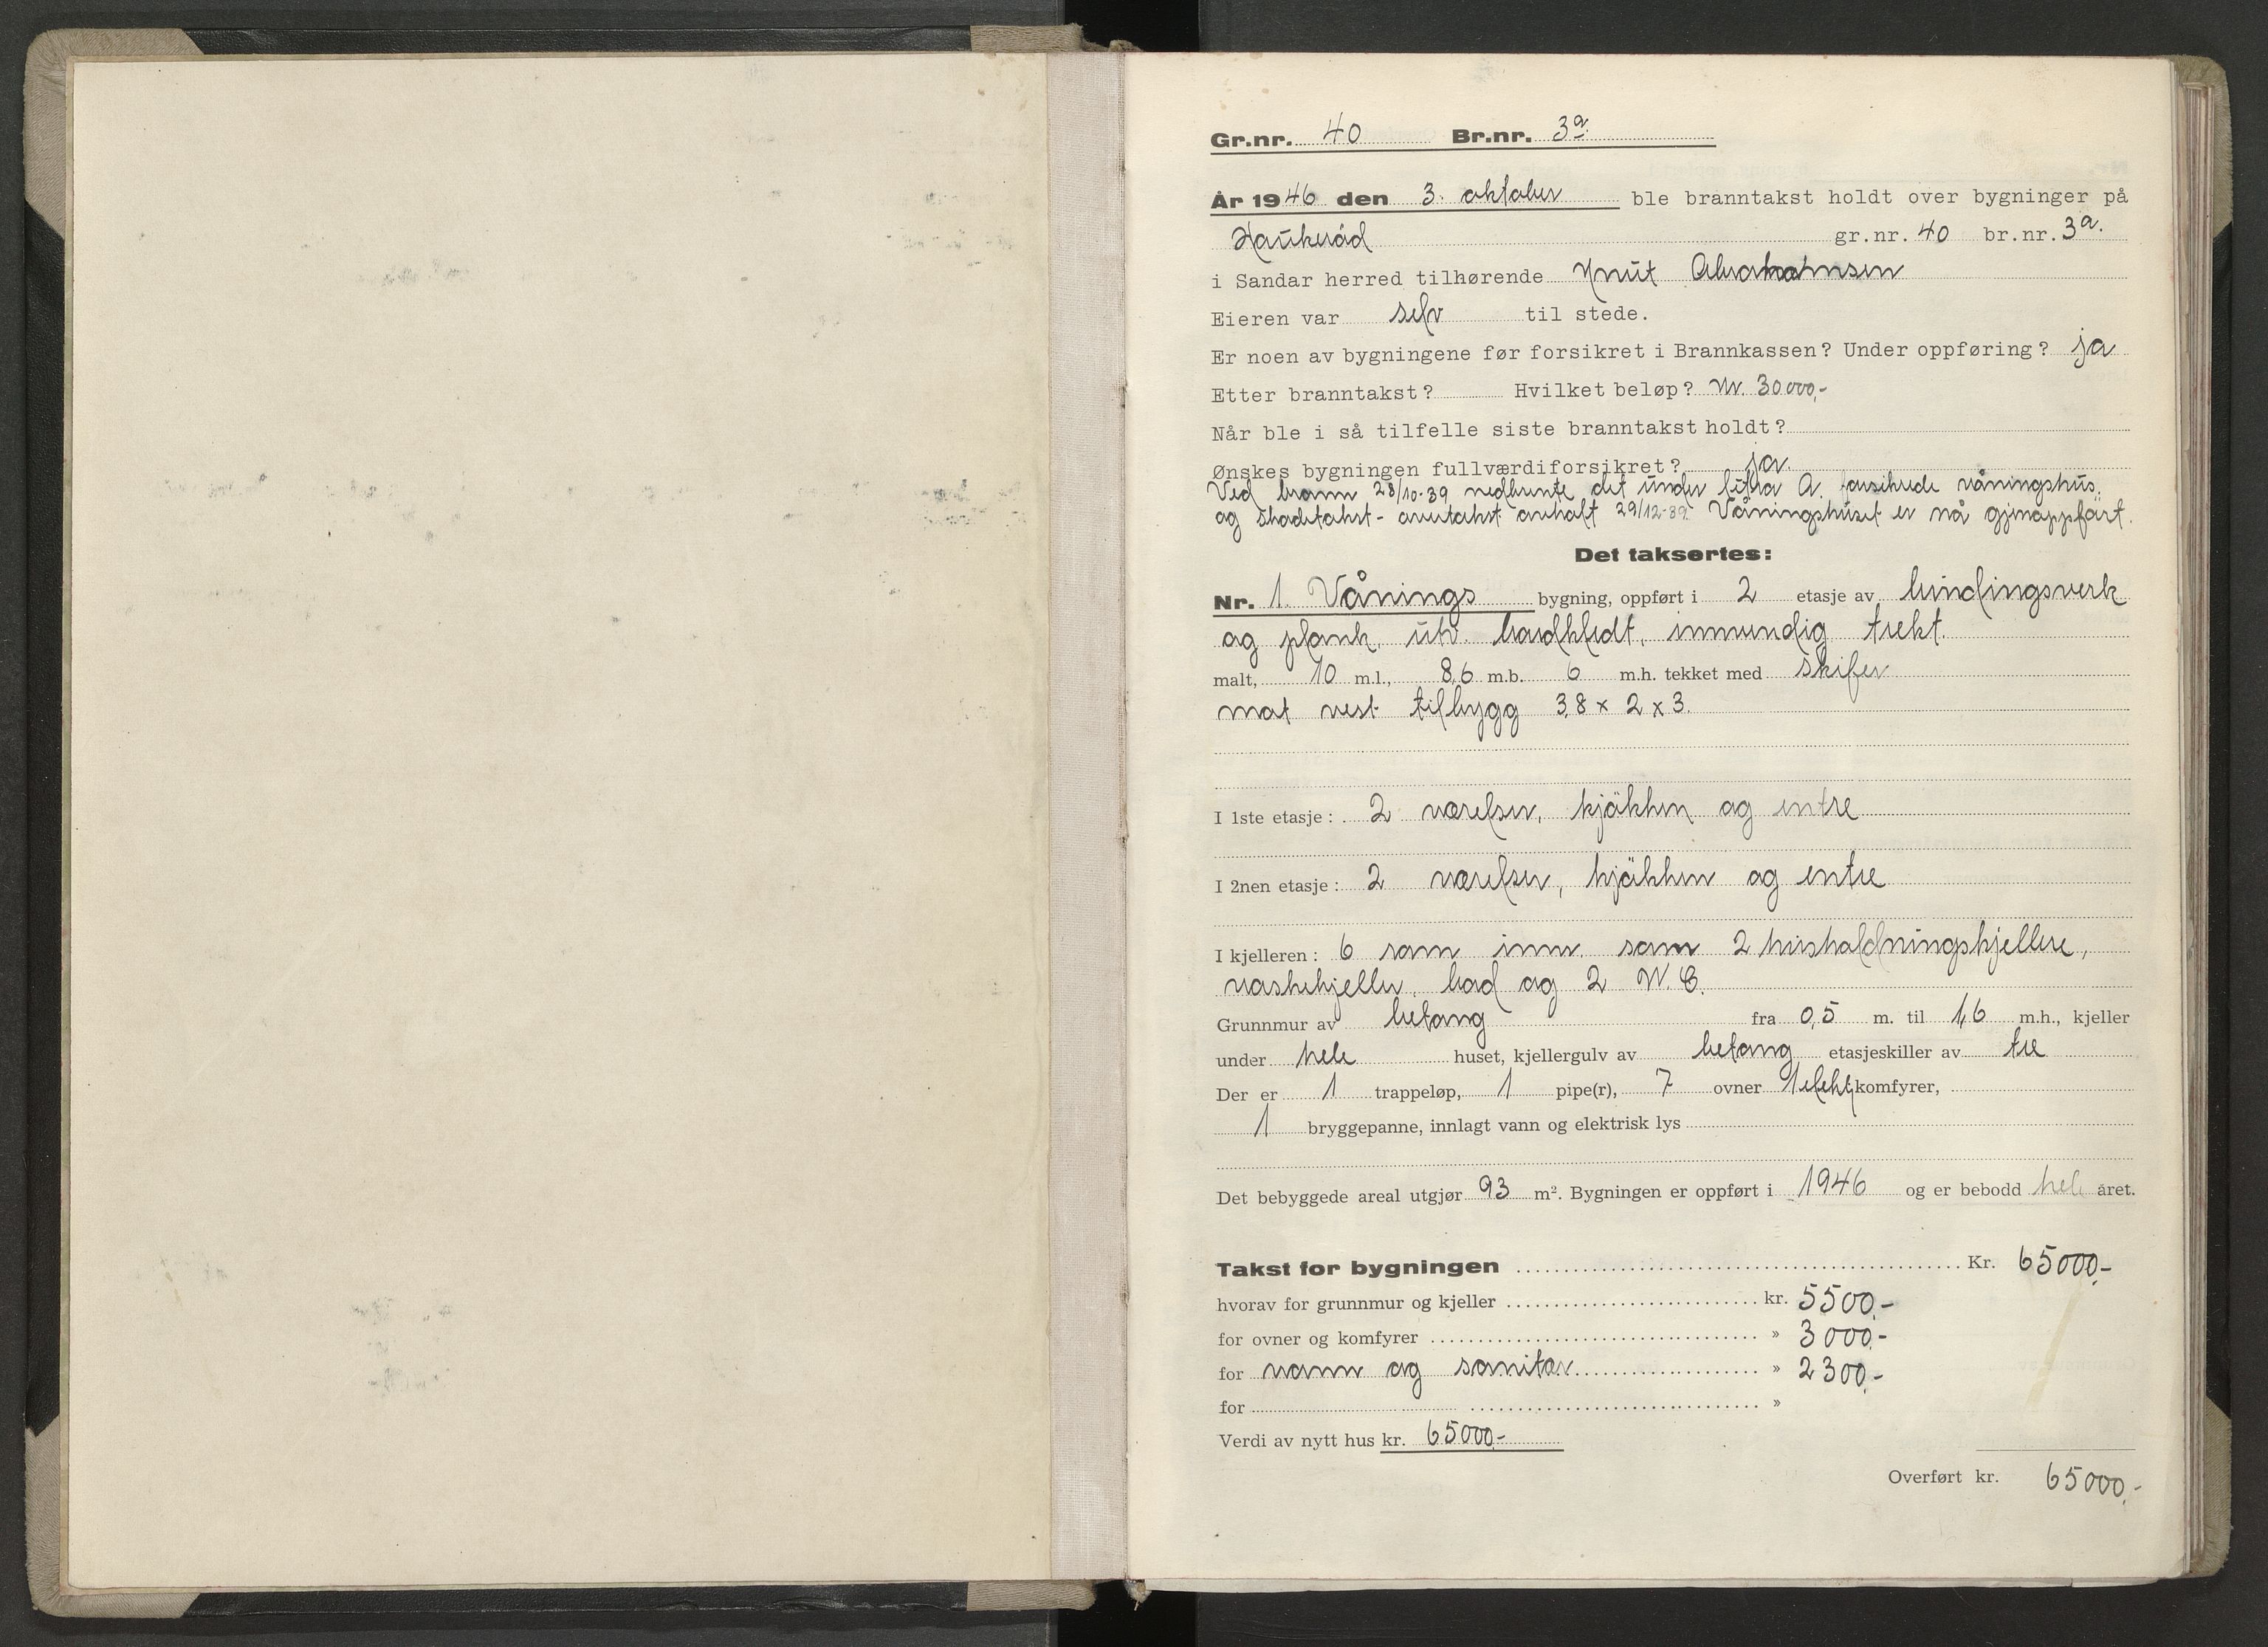 Gr.nr. 40 Br.nr. 3a
År 1946 den 3. oktober ble branntakst holdt over bygninger på
Haukerød gr.nr. 40 br.nr. 3a.
i Sandar herred tilhørende Knut Abrahamsen
Eieren var selv til stede.
Er noen av bygningene før forsikret i Brannkassen? Under oppføring? ja
Etter branntakst? Hvilket beløp? kr. 30000,-
Når ble i så tilfelle siste branntakst holdt?
Ønskes bygningen fullværdiforsikret? ja.
Ved brann 28/10-39 nedbrente det under litra A. forsikrede våningshus,
og skadetakst - avholt 29/12-39. Våningshuset er nå gjenoppført.
Det taksertes:
Nr. 1 Vånings bygning, oppført i 2 etasje av bindingsverk
og plank, utv. bordkledt, innvendig trekt.
malt, 10 m.l., 8,6 m.b. 6 m.h. tekket med skifer
mot vest tilbygg 3,8 x 2 x 3.
I 1ste etasje: 2 værelser, kjøkken og entre
I 2nen etasje: 2 værelser, kjøkken og entre
I kjelleren: 6 rom innr. som 2 husholdningskjellere,
vaskekjeller, bad og 2 W.C.
Grunnmur av betong fra 0,5 m. til 1,6 m.h., kjeller
under hele huset, kjellergulv av betong etasjeskiller av tre
Der er 1 trappeløp, 1 pipe(r), 7 ovner 1 elektr. komfyrer,
1 bryggepanne, innlagt vann og elektrisk lys
Det bebyggede areal utgjør 93 m². Bygningen er oppført i 1946 og er bebodd hele året.
Takst for bygningen Kr. 65000,-
hvorav for grunnmur og kjeller kr. 5500,-
for ovner og komfyrer » 3000,-
for vann og sanitær » 2300,-
for »
Verdi av nytt hus kr. 65000,-
Overført kr. 65000,-